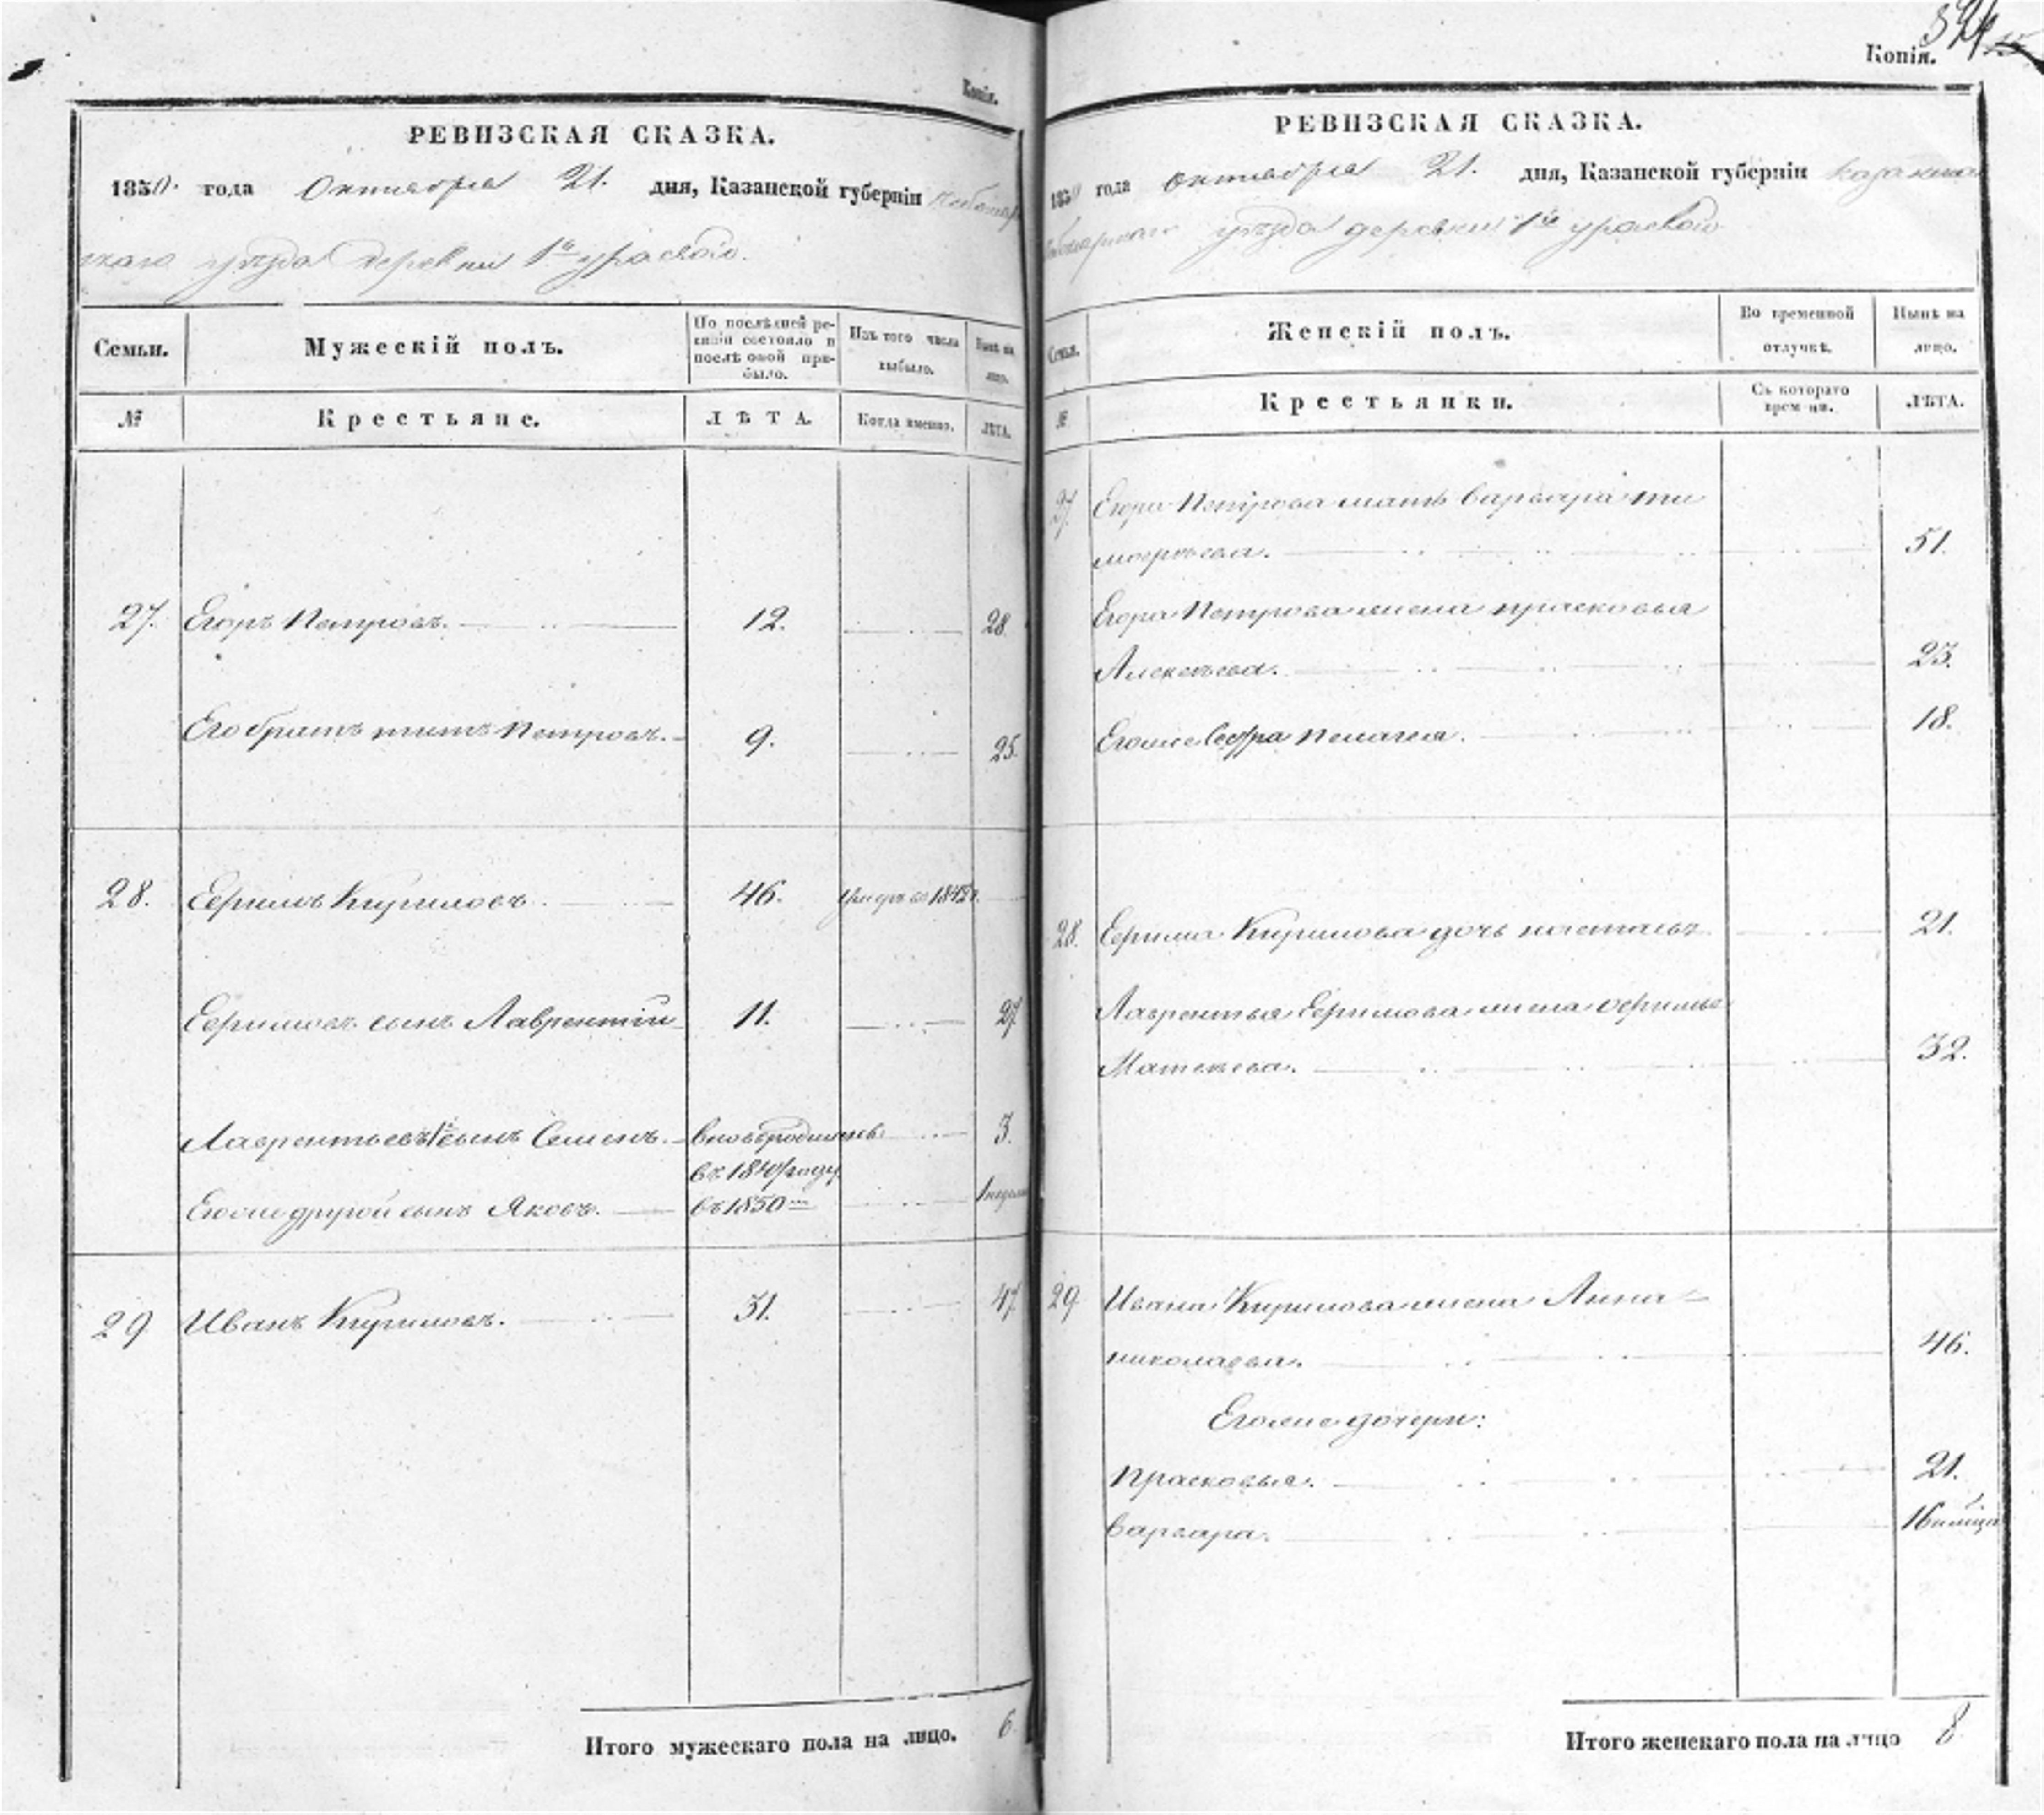 Копія.
РЕВИЗСКАЯ СКАЗКА.
1850. года Октября 21. дня, Казанской губерніи Чебоксар
скаго уѣзда деревни 1й Ураевой.
Семьи.
Мужескій полъ.
По послѣдней ре-
визіи состояло и
послѣ оной при-
было.
Изъ того числа
выбыло.
Нынѣ на
лицо.
№
Крестьяне.
ЛѢТА.
Когда именно.
ЛѢТА.
27. Егоръ Петровъ. 12. 28.
Его братъ титъ Петровъ. 9. 25.
28. Ефимъ Кириловъ. 46. Умеръ въ 1842 г.
Ефимовъ сынъ Лаврентій 11. 27.
Лаврентьевъ 1й сынъ Семенъ. вновьродившевъ 3.
въ 1847 году
Егоже другой сынъ Яковъ. въ 1850 1 недели
29 Иванъ Кириловъ. 31. 47.
Итого мужескаго пола на лицо. 6.
Копія.
РЕВИЗСКАЯ СКАЗКА.
1850 года октября 21. дня, Казанской губерніи
уѣзда деревни 1й ураевой
Семьи.
Женскій полъ.
Во временной
отлучкѣ.
Нынѣ на
лицо.
№
Крестьянки.
Съ котораго
времени.
ЛѢТА.
27. Егора Петрова мать варвара ти
мофѣева. 51.
Егора Петрова жена прасковья
Алексѣева. 23.
Егоже Сестра пелагея. 18.
28. Ефима Кирилова дочь настасья 21.
Лаврентья Ефимова жена офимья
Матвѣева. 32.
29 Ивана Кирилова жена Анна
николаева. 46.
Егоже дочери:
прасковья. 21.
варвара. 1
Итого женскаго пола на лицо 8.